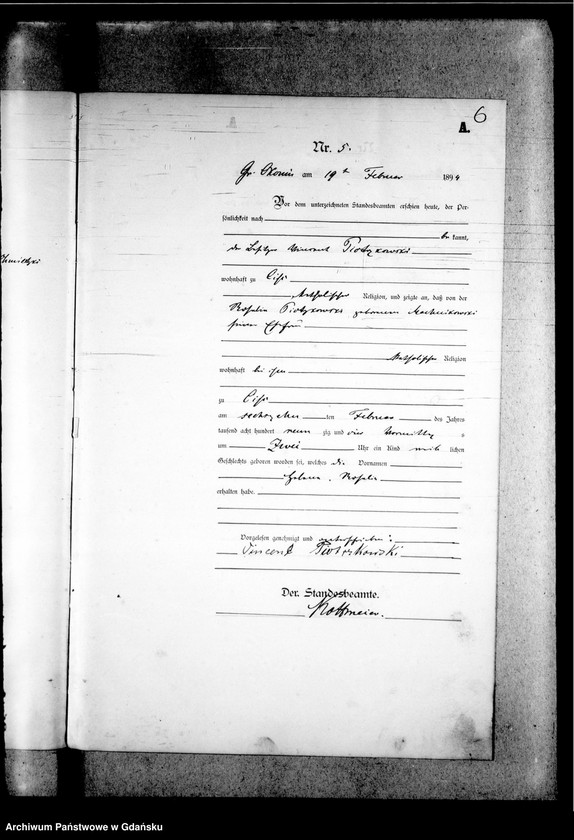 6
A.
Nr. 5.
Gr. Okonin am 19 ten Februar 1894
Vor dem unterzeichneten Standesbeamten erschien heute, der Per-
sönlichkeit nach
be kannt,
der Besitzer Vincent Piotrzkowski
wohnhaft zu
katholischer Religion, und zeigte an, daß von der
Rosalia Piotrzkowski geborenen
seiner Ehefrau
katholischer Religion
wohnhaft bei ihm
zu
am sechszehn ten Februar des Jahres
tausend acht hundert neun zig und vier Vormittag s
um Zwei Uhr ein Kind weib lichen
Geschlechts geboren worden sei, welches die Vornamen
Helena, Rosalia
erhalten habe.
Vorgelesen genehmigt und unterschrieben:
Vincent Piotrzkowski
Der Standesbeamte.
Archiwum Państwowe w Gdańsku